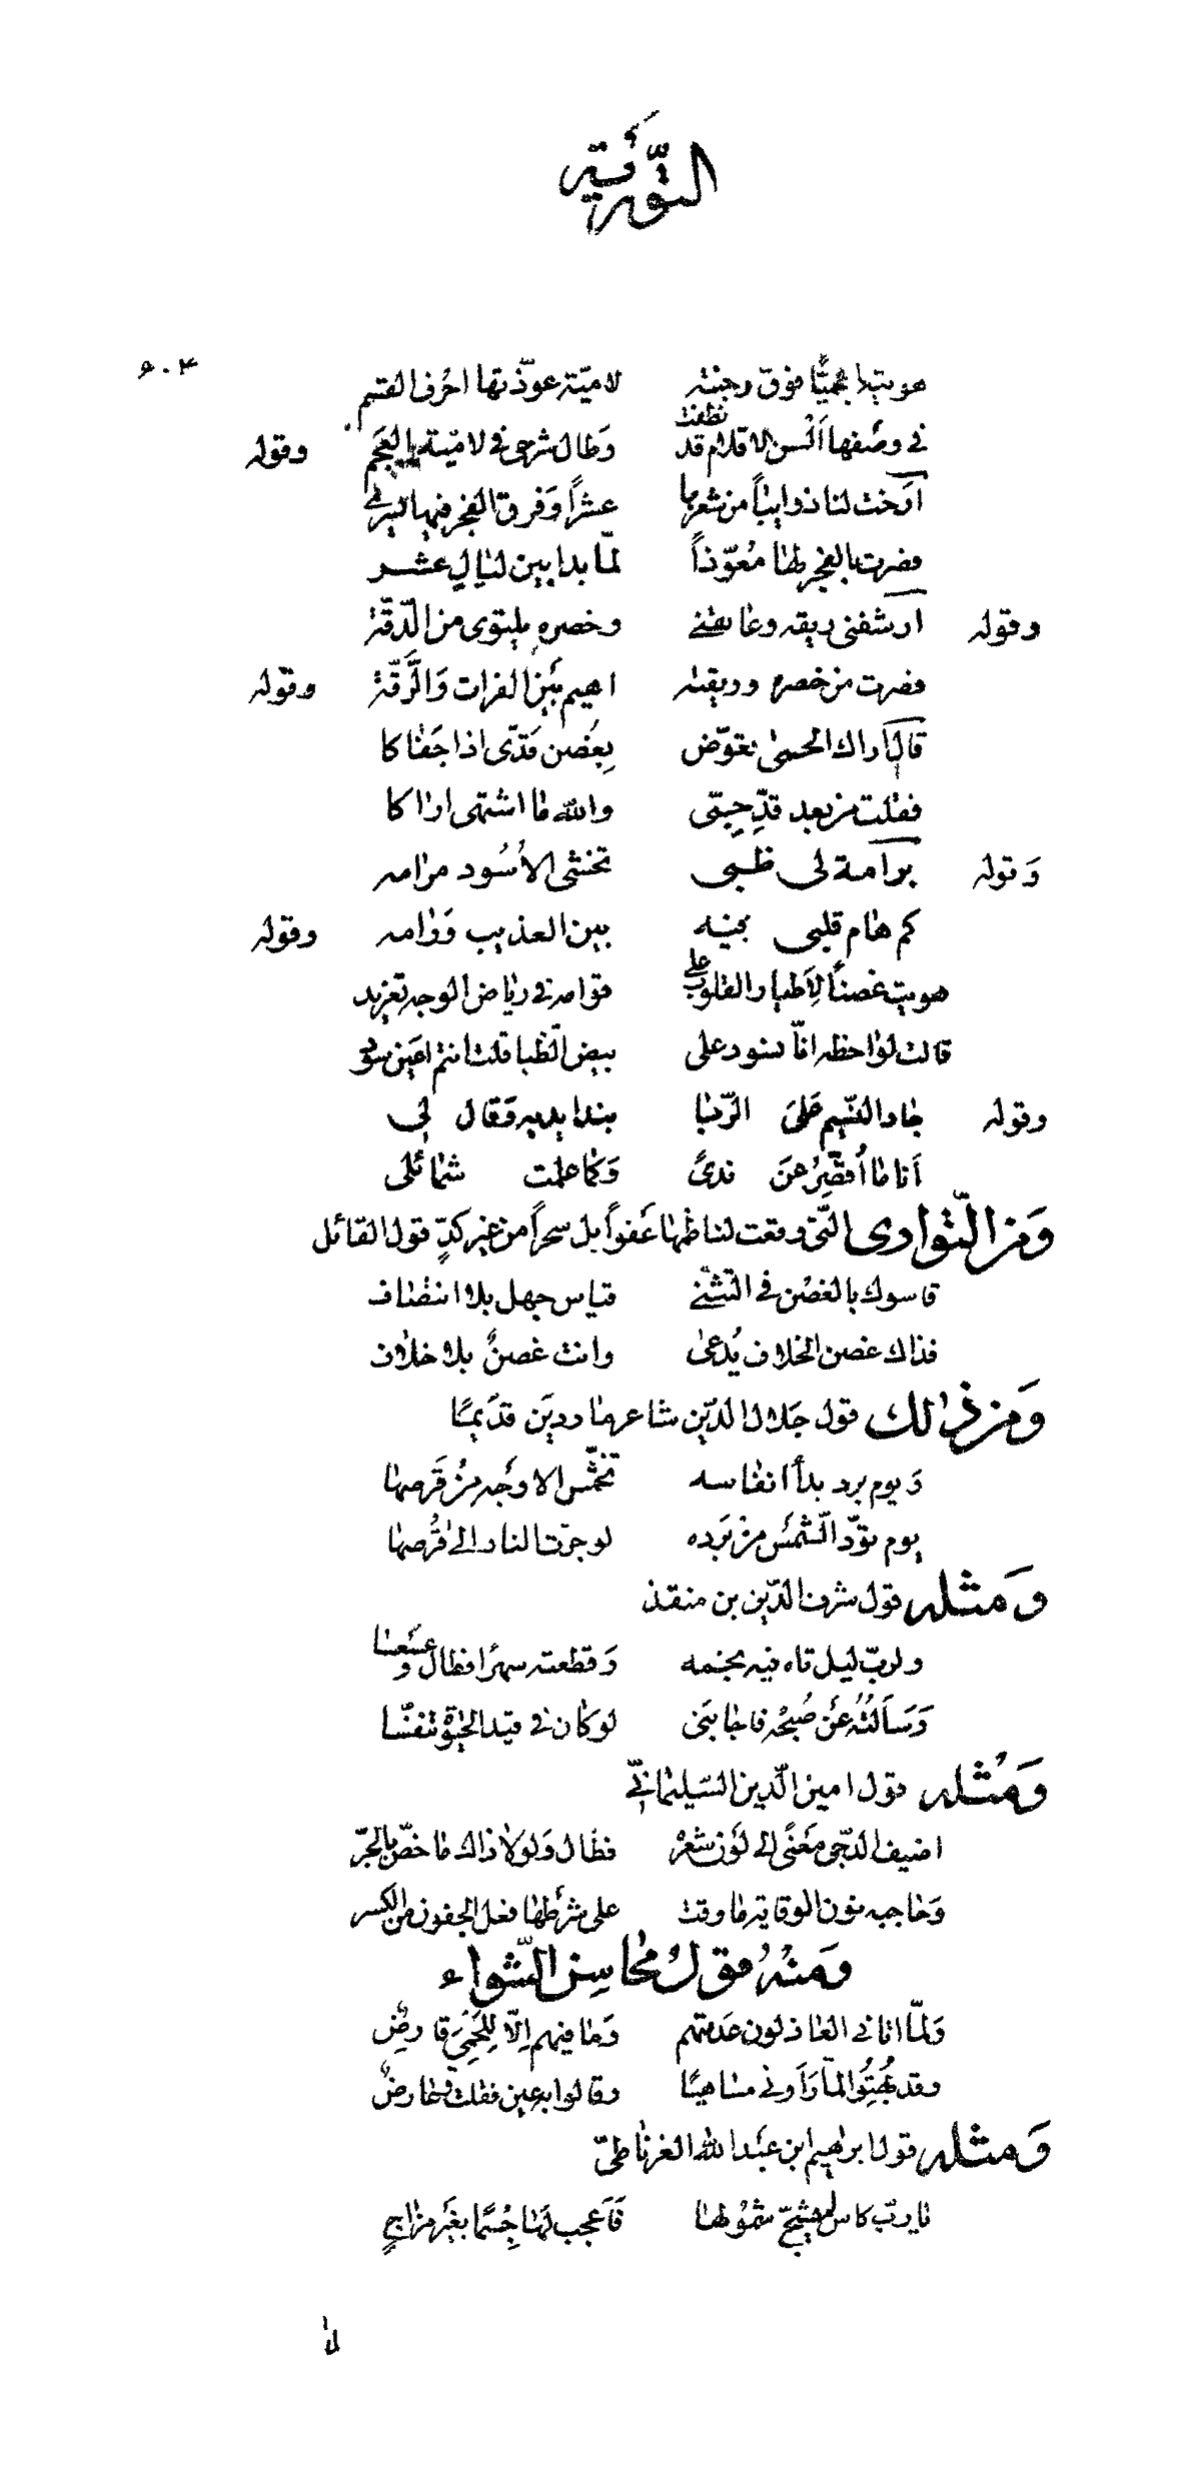 التَّورية
٦٠٤
هويتها عجميًّا فوق وجنته لاميّة عوّذتها احرف القسم
في وصفها ألسن الاقلام قد نطقت وَطال شرحى في لاميّة العجم وقوله
ارخت لنا ذوايبًا من شعرها عشرًا وَفرق الفجر فيها
فصرت بالفجر لها مُعوّذاً لمّا بدا بين ليال عشر
وقوله ارشفنى ريقه وعانقنى وخصره يلتوى من الدّقّة
فصرت من خصره وريقته اهيم بين الفرات وَالرَّقّة وقوله
قال اراك الحمى تعوّض بِغُصن قَدّى اذا جَفاكا
فقلت من بعد قدِّ حِبّى والله ما اشتهى اراكا
وَقوله برامة لى ظبى تخشى الاسُود مرامه
كم هام قلبى بحبه بين العذيب وَرامه وقوله
هويت غصنًا لِأطيار القلوب على قوامه في رياض الوجد تغريد
قالت لواحظه انّا نسود على بيض الظّبا قلت انتم اعين سود
وقوله جاد النّسيم عَلىَ الرّبا بندا يديه وَقال لى
أنا ما أُقصِّرُ عن ندىً وَكما علمت شمائلى
وَمن التّوارى التّى وقعت لناظمها عَفواً بل سحراً من غير كدٍّ قول القائل
قاسوك بالغصْن في التثنّي قياس جهل بلا انتصاف
فذاك غصن الخلاف يُدعى وانت غصنٌ بلا خلاف
وَمن ذالك قول جَلال الدّين شاعر ماردين قدَيمًا
وَيوم برد بدأ انفاسه تخمّش الاوجُه من قَرصها
يوم تودّ الشّمسُ من بَرده لو جرّت النار الى قُرصها
وَمثله قول شرف الدّين بن منقذ
ولربّ ليل تاه فيه نجمه وَقطعته سهرًا فطال وعسْعسا
وَسَألتُهُ عَن صُبحْه فاجابنى لو كان في قيد الحيوة تنفسّا
وَمثْله قول امين الدّين السّليمانيّ
اضيف الدّجى مَعنًى الى لَون شعْره فطال وَلولا ذاك ما خصّ بالجرّ
وَحاجبه نون الوقاية ما وقت على شرطها فعل الجفون من الكسر
وَمنْهُ قولُ محاسِن الشّواء
وَلمّا اتانى العاذلون عَدمتهم وَما فيهم اِلّا لِلَحْمِىَ قارضٌ
وقد بُهِتُوا لمّا رَأَونى شاحبًا وقالوا به عين فقلت وعارضٌ
وَمثله قول ابراهيم ابن عَبد الله الغرناطىّ
يا ربّ كاس لم تشجّ شمُولها فَاَعجب لَها جِسْمًا بغَير مزاجٍ
لا